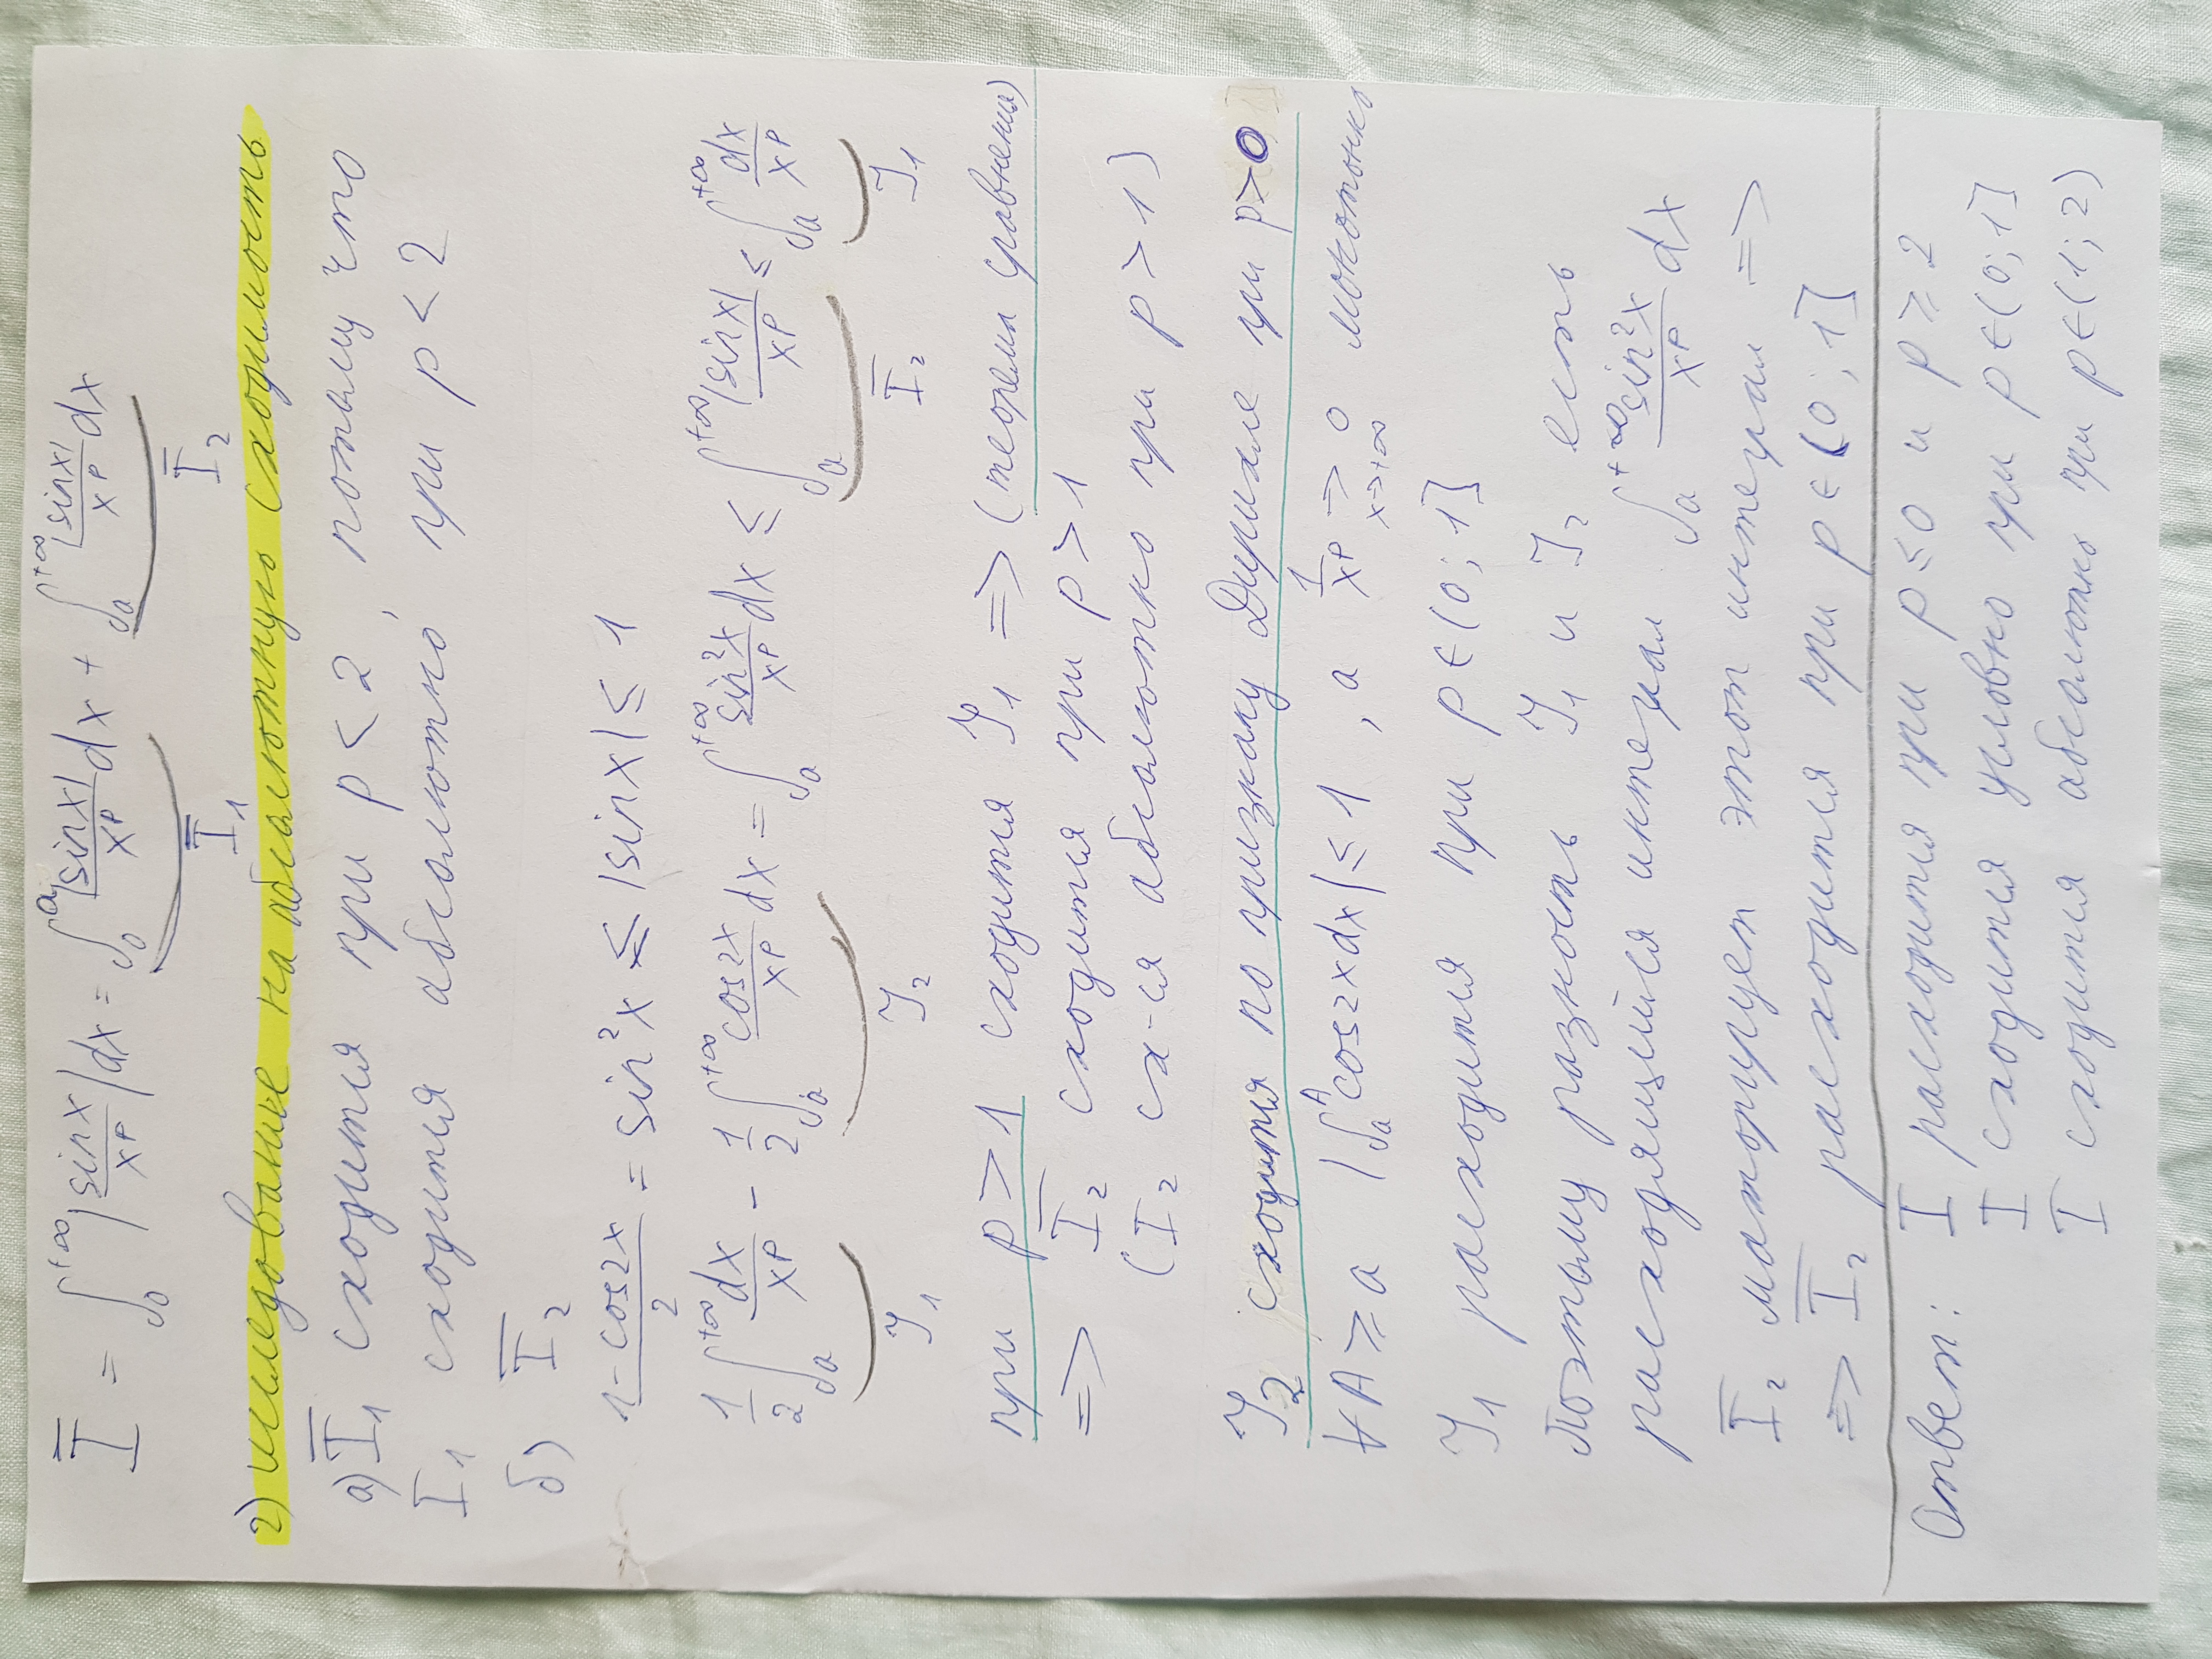 Ī = ∫₀^{+∞} |sin x / x^p| dx = ∫₀^a |sin x| / x^p dx + ∫ₐ^{+∞} |sin x| / x^p dx
Ī₁ Ī₂
2) исследование на абсолютную сходимость
а) Ī₁ сходится при p < 2, потому что
I₁ сходится абсолютно при p < 2
б) Ī₂
(1 - cos 2x) / 2 = sin² x ≤ |sin x| ≤ 1
1/2 ∫ₐ^{+∞} dx / x^p - 1/2 ∫ₐ^{+∞} cos 2x / x^p dx = ∫ₐ^{+∞} sin² x / x^p dx ≤ ∫ₐ^{+∞} |sin x| / x^p ≤ ∫ₐ^{+∞} dx / x^p
J₁ J₂ Ī₂ J₁
при p > 1 сходится J₁ => (теорема сравнения)
=> Ī₂ сходится при p > 1
(I₂ сх-ся абсолютно при p > 1)
J₂ сходится по признаку Дирихле при p > 0
∀ A ≥ a |∫ₐ^A cos 2x dx| ≤ 1, а 1 / x^p => 0 x→+∞ монотонно
J₁ расходится при p ∈ (0; 1]
Поэтому разность J₁ и J₂ есть
расходящийся интеграл ∫ₐ^{+∞} sin² x / x^p dx
Ī₂ мажорирует этот интеграл =>
=> Ī₂ расходится при p ∈ (0; 1]
Ответ: I расходится при p ≤ 0 и p ≥ 2
I сходится условно при p ∈ (0; 1]
I сходится абсолютно при p ∈ (1; 2)